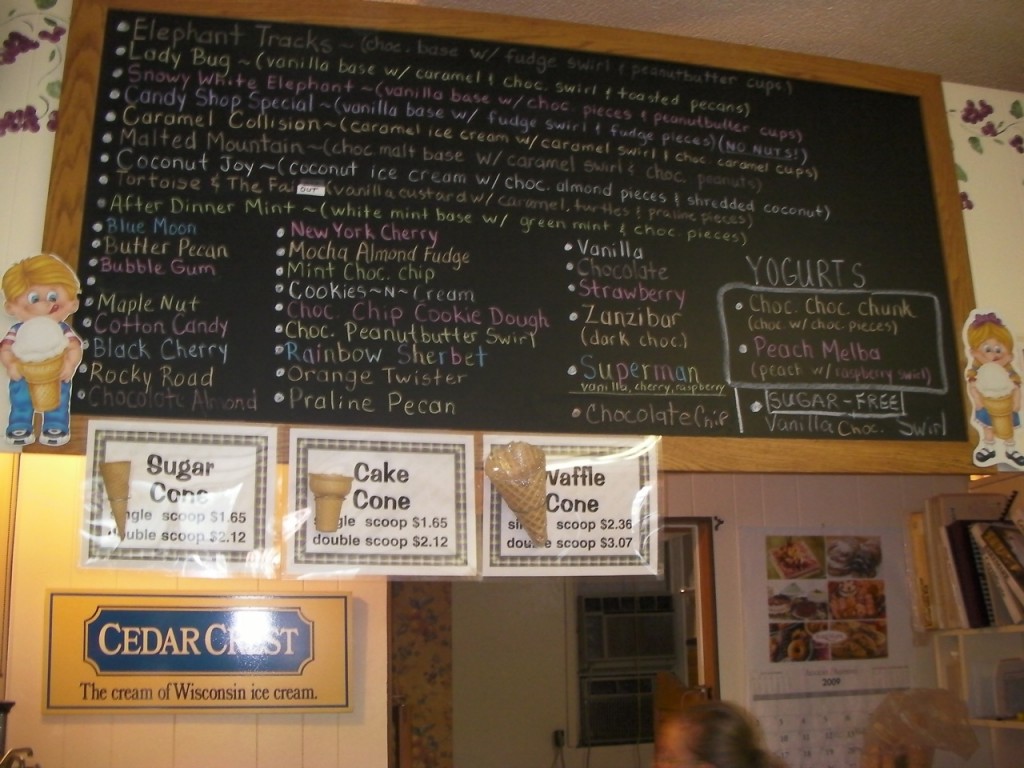 Elephant Tracks ~ (choc. base w/ fudge swirl & peanutbutter cups.)
Lady Bug ~ (vanilla base w/ caramel & choc. swirl & toasted pecans)
Snowy White Elephant ~ (vanilla base w/ choc. pieces & peanutbutter cups)
Candy Shop Special ~ (vanilla base w/ fudge swirl & fudge pieces) (NO NUTS!)
Caramel Collision ~ (caramel ice cream w/ caramel swirl & choc. caramel cups)
Malted Mountain ~ (choc malt base w/ caramel swirl & choc. peanuts)
Coconut Joy ~ (coconut ice cream w/ choc. almond pieces & shredded coconut)
Tortoise & The Fai OUT (vanilla custard w/ caramel, turtles & praline pieces)
After Dinner Mint ~ (white mint base w/ green mint & choc. pieces)
Blue Moon
Butter Pecan
Bubble Gum
Maple Nut
Cotton Candy
Black Cherry
Rocky Road
Chocolate Almond
New York Cherry
Mocha Almond Fudge
Mint Choc. chip
Cookies ~N~ Cream
Choc. Chip Cookie Dough
Choc. Peanutbutter Swirl
Rainbow Sherbet
Orange Twister
Praline Pecan
Vanilla
Chocolate
Strawberry
Zanzibar
(dark choc.)
Superman
vanilla, cherry, raspberry
Chocolate Chip
YOGURTS
Choc. Choc. chunk
(choc w/ choc. pieces)
Peach Melba
(peach w/ raspberry swirl)
SUGAR-FREE
Vanilla Choc. Swirl
Sugar
Cone
ngle scoop $1.65
double scoop $2.12
Cake
Cone
single scoop $1.65
double scoop $2.12
Waffle
Cone
sin scoop $2.36
double scoop $3.07
CEDAR CREST
The cream of Wisconsin ice cream.
2009